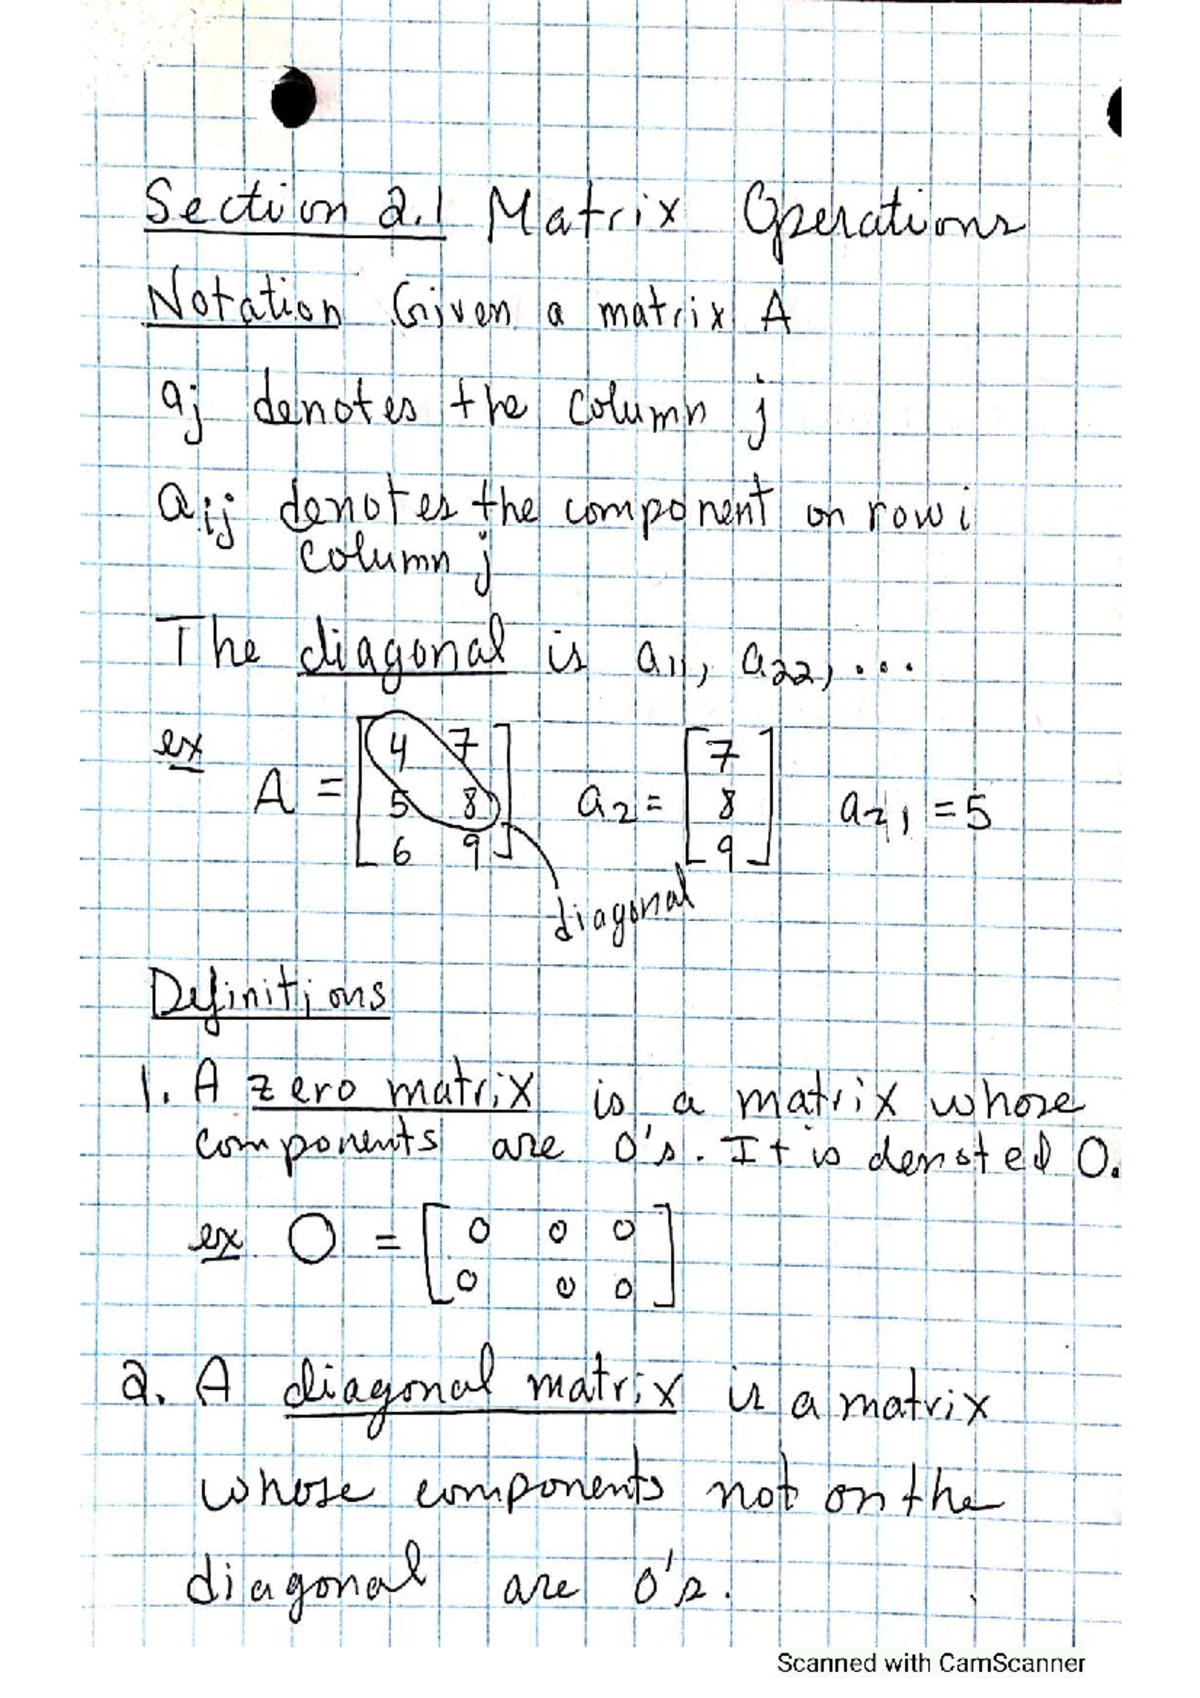 Section 2.1 Matrix Operations
Notation Given a matrix A
aj denotes the column j
aij denotes the component on row i
column j
The diagonal is a11, a22, ...
ex A = [4 7
5 8
6 9] a2 = [7
8
9] a21 = 5
diagonal
Definitions
1. A zero matrix is a matrix whose
components are 0's. It is denoted O.
ex. O = [0 0 0
0 0 0]
2. A diagonal matrix is a matrix
whose components not on the
diagonal are 0's.
Scanned with CamScanner